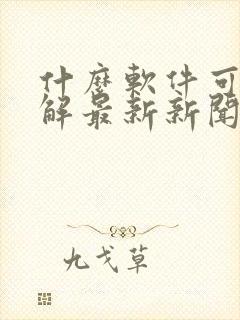 什麼軟件可
解最新新聞
九戈草